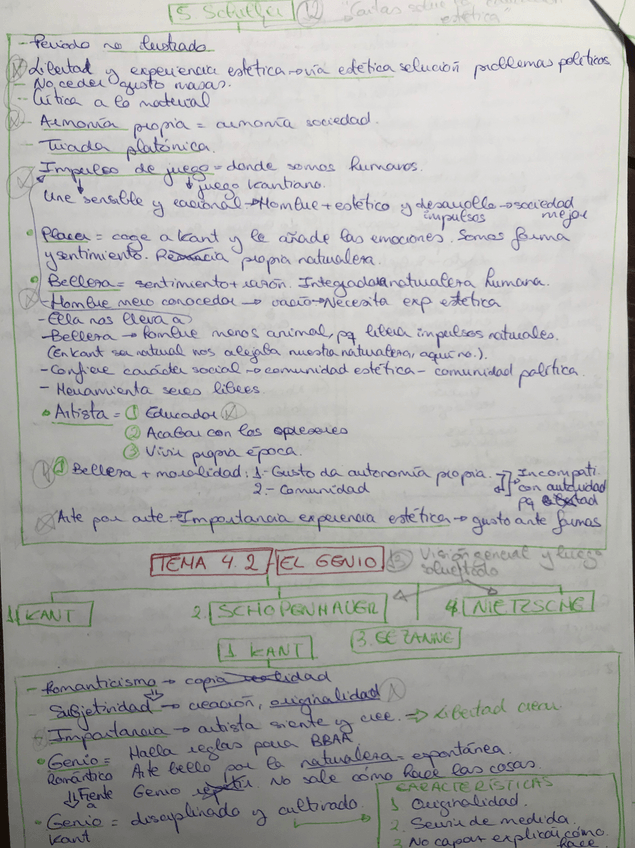 5 Schiller 12 "Cartas sobre la educación estética"
- Período no ilustrado
- Libertad y experiencia estética → vía estética solución problemas políticos
- No ceder gusto masas.
- Crítica a lo material
- Armonía propia = armonía sociedad.
- Triada platónica.
- Impulso de juego = donde somos humanos.
↓ juego kantiano.
Une sensible y racional → Hombre + estético y desarrolla → sociedad
impulsos mejor
• Placer = coge a Kant y le añade las emociones. Somos forma
y sentimiento. propia naturaleza.
• Belleza = sentimiento + razón. Integradora naturaleza humana.
- Hombre mero conocedor → vacío → Necesita exp estética
- Ella nos lleva a
- Belleza → hombre menos animal, pq libera impulsos naturales.
(En kant ser natural nos alejaba nuestra naturaleza, aquí no.).
- Confiere carácter social → comunidad estética - comunidad política.
- Herramienta seres libres.
• Artista = 1 Educador
2 Acabar con los opresores
3 Vivir propia época.
Belleza + moralidad: 1- Gusto da autonomía propia. Incompati.
2.- Comunidad con autoridad
pq libertad
Arte por arte → Importancia experiencia estética → gusto ante formas
TEMA 4.2 EL GENIO 13 Visión general y luego
solicitado
1. KANT 2. SCHOPENHAUER 4. NIETZSCHE
3. CEZANNE
1 KANT
- Romanticismo → copia realidad
Subjetividad → creación, originalidad
- Importancia → artista siente y cree. ⇒ Libertad crear
• Genio = Halla reglas para BBAA
Romántico Arte bello por la naturaleza = espontánea.
Genio No sale cómo hace las cosas.
⇓ Frente
a
• Genio = disciplinado y cultivado
Kant
CARACTERÍSTICAS
1 Originalidad.
2. Servir de medida.
3 No capaz explicar cómo
hace